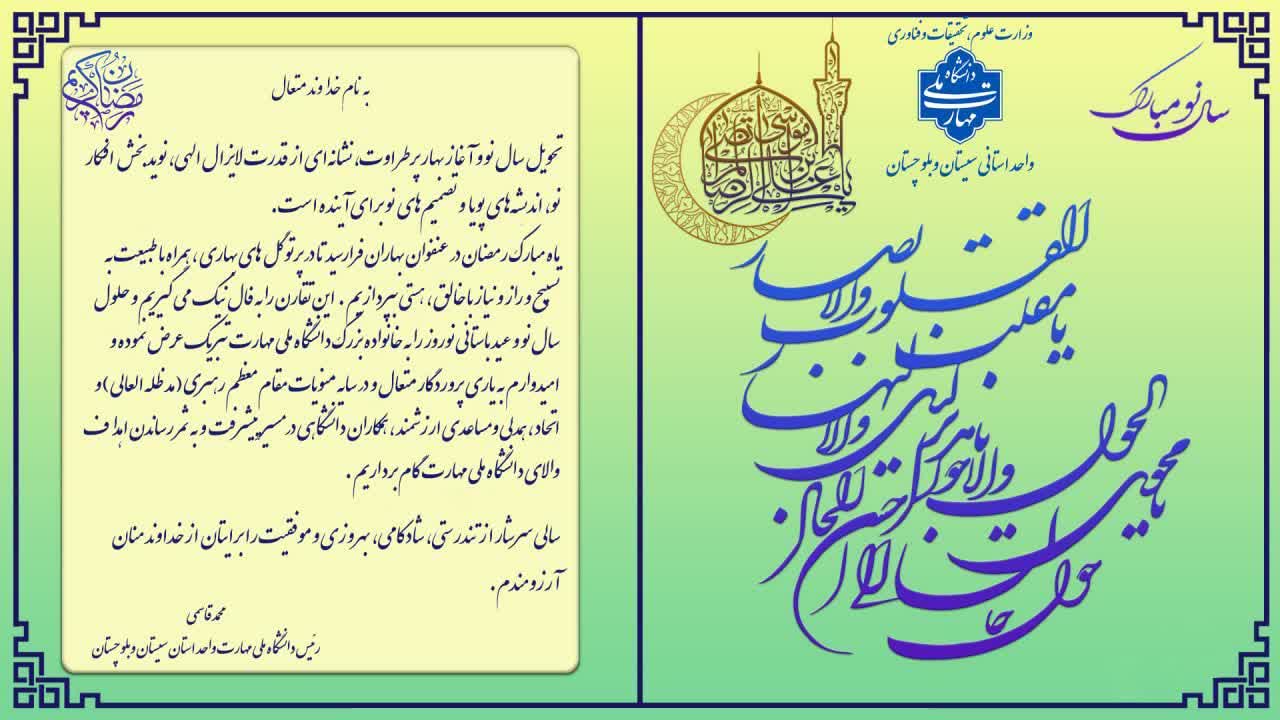 وزارت علوم، تحقیقات و فناوری
دانشگاه
ملی
مهارت
واحد استانی سیستان و بلوچستان
سال نو مبارک
یا مقلب القلوب والابصار
یا مدبر اللیل والنهار
یا محول الحول والاحوال
حول حالنا الی احسن الحال
رمضان کریم
به نام خداوند متعال
تحویل سال نو و آغاز بهار پرطراوت، نشانه‌ای از قدرت لایزال الهی، نویدبخش افکار
نو، اندیشه‌های پویا و تصمیم های نو برای آینده است.
ماه مبارک رمضان در عنفوان بهاران فرا رسید تا در پرتو گل های بهاری، همراه با طبیعت به
تسبیح و راز و نیاز با خالق، هستی بپردازیم. این تقارن را به فال نیک می گیریم و حلول
سال نو و عید باستانی نوروز را به خانواده بزرگ دانشگاه ملی مهارت تبریک عرض نموده و
امیدوارم به یاری پروردگار متعال و در سایه منویات مقام معظم رهبری (مدظله العالی) و
اتحاد، همدلی و مساعدی ارزشمند، همکاران دانشگاهی در مسیر پیشرفت و به ثمر رساندن اهداف
والای دانشگاه ملی مهارت گام برداریم.
سالی سرشار از تندرستی، شادکامی، بهروزی و موفقیت را برایتان از خداوند منان
آرزومندم.
محمد قاسمی
رئیس دانشگاه ملی مهارت واحد استان سیستان و بلوچستان